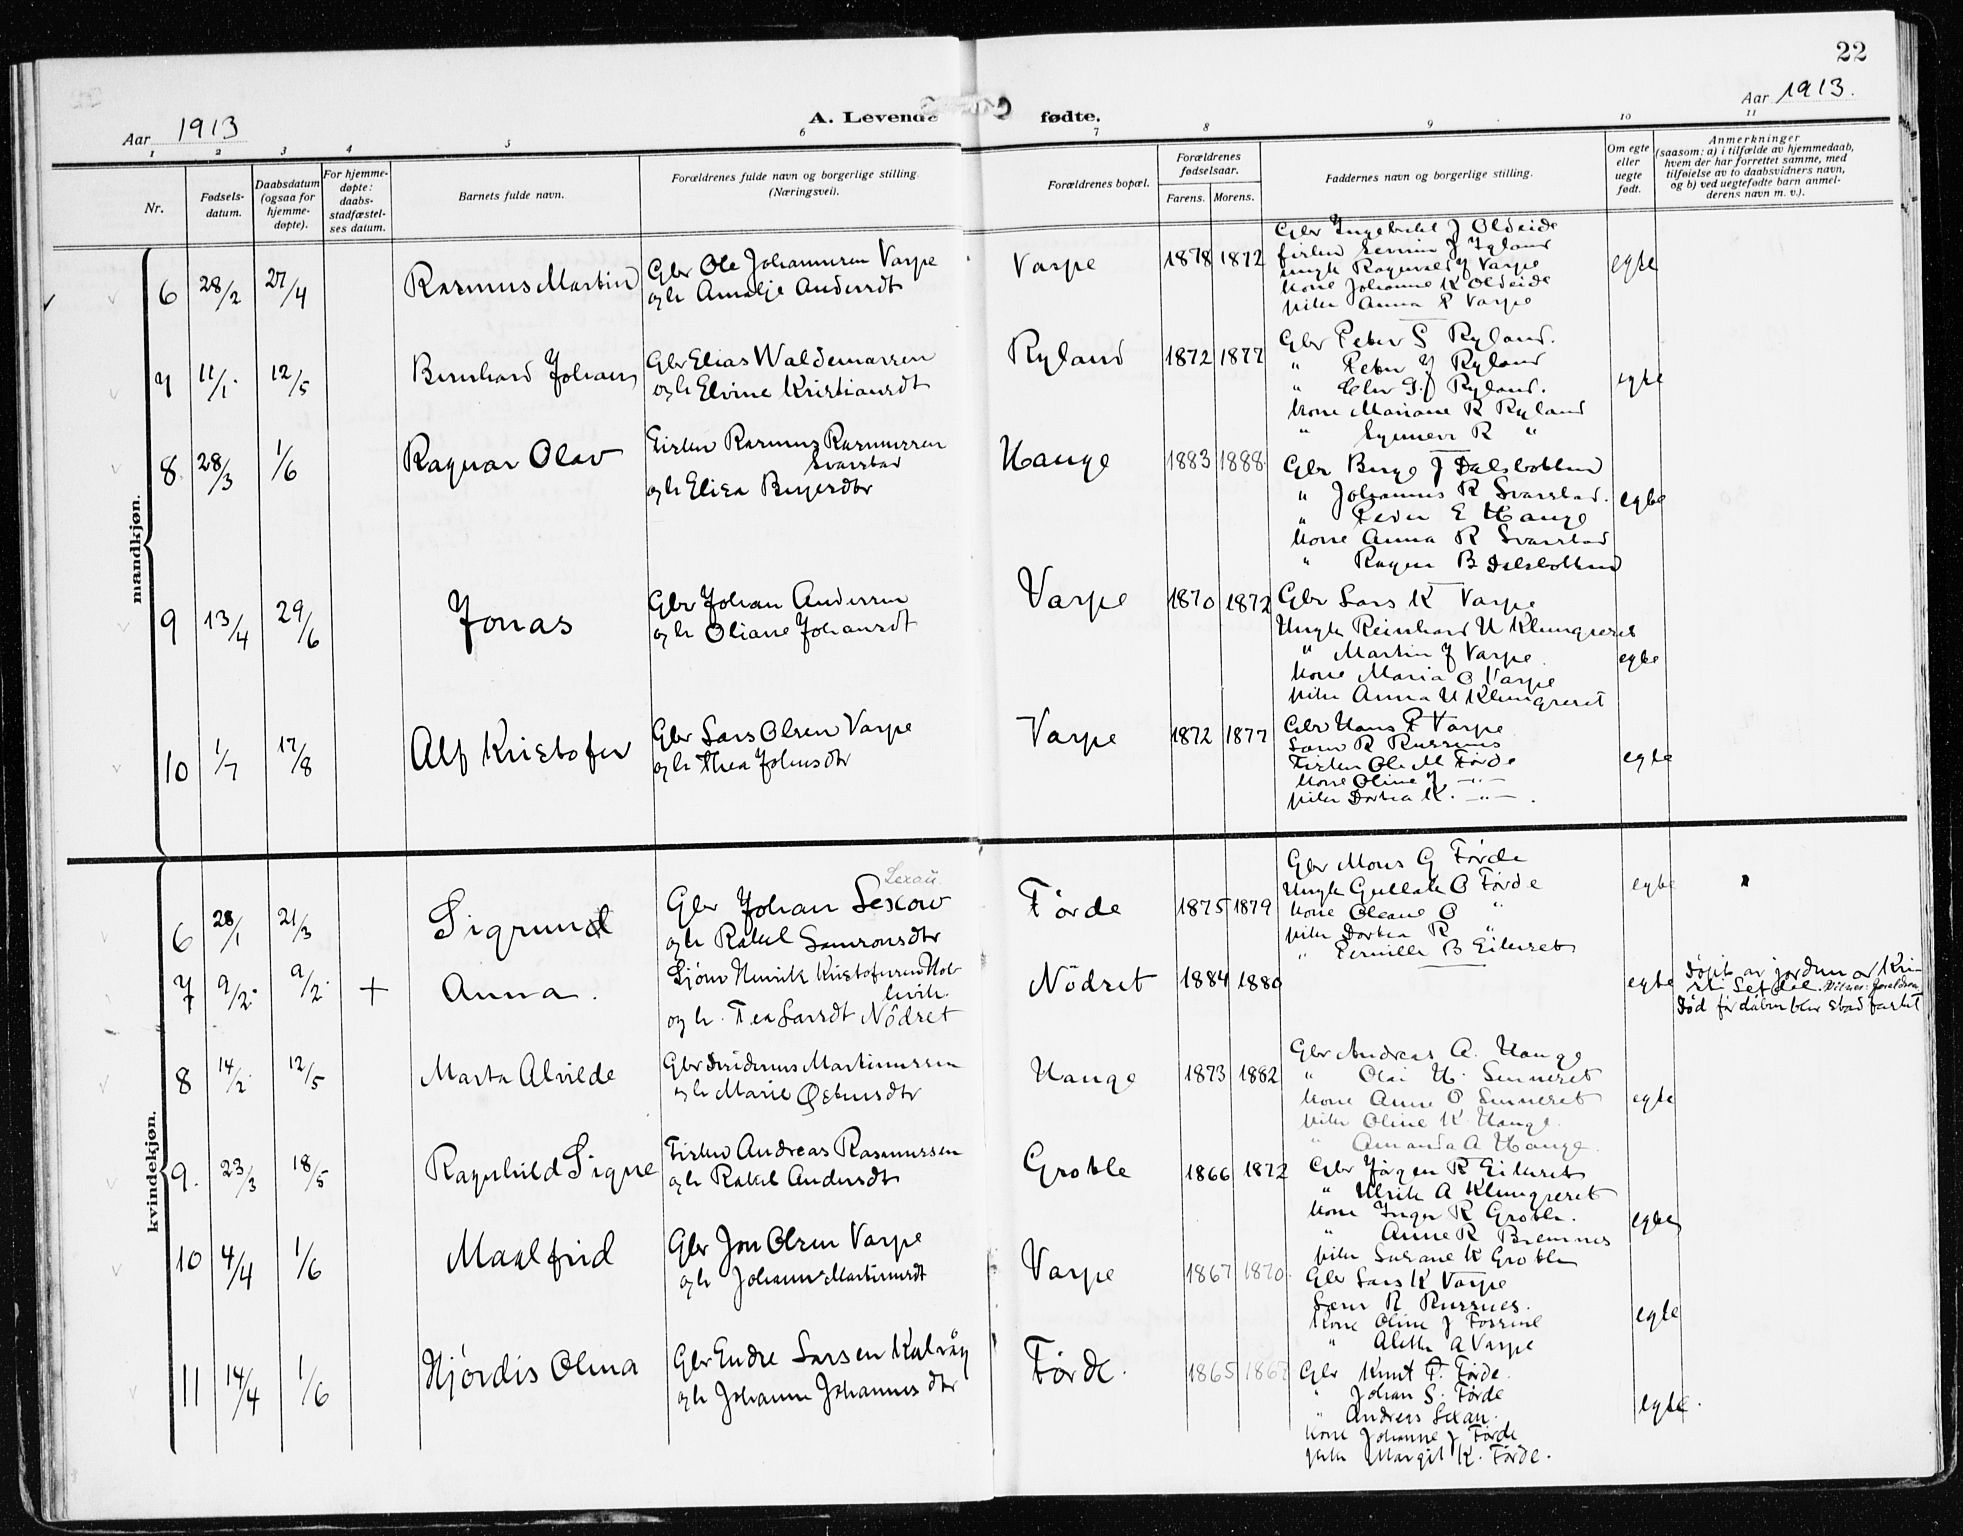 22
Aar 1913
A. Levende fødte.
Aar 1913.
1 2 3 4 5 6 7 8 9 10 11
Nr.
Fødsels-
datum.
Daabsdatum
(ogsaa for
hjemme-
døpte).
For hjemme-
døpte:
daabs-
stadfæstel-
ses datum.
Barnets fulde navn.
Forældrenes fulde navn og borgerlige stilling.
(Næringsvei).
Forældrenes bopæl.
Forældrenes
fødselsaar.
Farens. Morens.
Faddernes navn og borgerlige stilling.
Om egte
eller
uegte
født.
Anmerkninger
(saasom: a) i tilfælde av hjemmedaab,
hvem der har forrettet samme, med
tilføielse av to daabsvidners navn,
og b) ved uegtefødte barn anmel-
derens navn m. v.).
mandkjøn.
6 28/2 27/4 Rasmus Martin
Gbr Ole Johannesen Varpe
og h Amalje Andersdt
Varpe 1878 1872
Gbr Ingebrikt J Oldeide
Ragnvald J Varpe
kone Johanne K Oldeide
piken Anna P Varpe
egte
7 11/1. 12/5 Bernhard Johan
Gbr Elias Waldemarsen
og h Elvine Kristiansdt
Ryland 1872 1877
Gbr Peter S Ryland.
" Peter J Ryland
" Ryland.
kone Mariane R Ryland
" Synneve R "
egte
8. 28/3 1/6 Ragnar Olav
Fisker Rasmus Rasmussen
Svarstad
og h Elisa Birgersdtr
Hauge 1883 1888
Gbr Birge J Dalsbotten
" Johannes R Svarstad.
" Peder E Hauge
kone Anna R Svarstad
" Ragna B Dalsbotten
egte
9 13/4 29/6 Jonas
Gbr Johan Andersen
og h Oliane Johansdt
Varpe 1870 1872
Gbr Lars K Varpe
Ungk Reinhard U Klungreset
" Martin J Varpe.
kone Maria O Varpe
piken Anna U Klungreset
egte
10 1/7 17/8 Alf Kristofer
Gbr Lars Olsen Varpe
og h Thea Johnsdtr
Varpe 1872 1877
Gbr Hans P Varpe
Sam R Russnes
Fisker Ole M Førde
kone Oline J —"—
piken Dortea K. —"—.
egte
kvindekjøn.
6 28/1 21/3 Sigrund
Lexau.
Gbr Johan Lexow
og h Rakel Samsonsdtr
Førde 1875 1879
Gbr Mons G Førde
Ungk Gullak O Førde
kone Oleane O "
piken Dortea R "
" Pernille B Eikeset
egte
7 9/2. 9/2. + Anna.
Sjøm Henrik Kristofersen Hol-
og h. Tea Larsdt Nödset
Nödset 1884 1880
egte
Døpt av jordm or Kri-
sti Setdal.
Død før daaben blev stadfæstet
8 14/2 12/5 Marta Alvilde
Gbr Desiderius Martinussen
og h Marie Østensdtr
Hauge 1873 1882
Gbr Andreas A. Hauge
" Olai H. Senneset
kone Anne O Senneset
piken Oline K. Hauge.
" Amanda A Hauge.
egte
9. 23/3 18/5 Ragnhild Signe
Fisker Andreas Rasmussen
og h Rakel Andersdt
Grotle 1866 1872
Gbr Jörgen R Eikeset
" Ulrik A Klungreset
kone Inger R Grotle.
" Anne R Bremnes
piken Susane K Grotle
egte
10 4/4 1/6 Maalfrid
Gbr Jon Olsen Varpe
og h Johanne Martinusdt
Varpe 1867 1870.
Gbr Lars K Varpe
Sam R Russnes.
kone Oline J Fosseide
" Alette A Varpe
egte
11 14/4 1/6 Hjördis Olina
Gbr Endre Larsen Kalvåg
og h Johanne Johannesdtr
Førde. 1865 1867
Gbr Knut F. Førde.
" Johan S. Førde
" Andreas Lexau.
kone Johanne J Førde
piken Margit K. Førde.
egte.